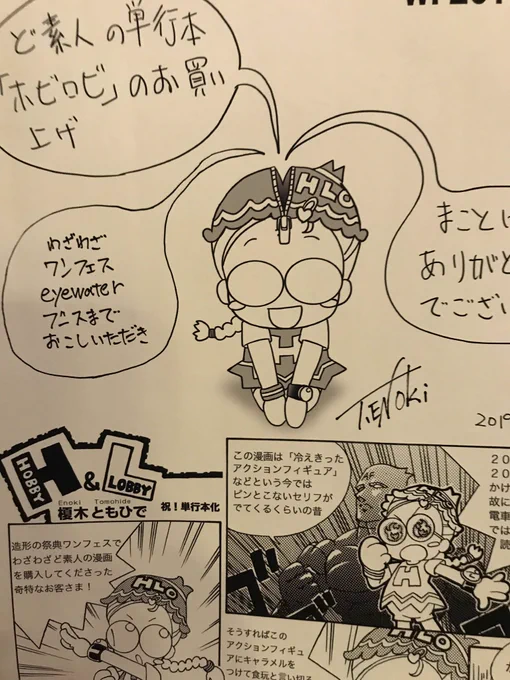 ど素人の単行本
「ホビロビ」のお買い
上げ
わざわざ
ワンフェス
eyewater
ブースまで
おこしいただき
まことに
ありがと
でござい
HLO
H
T.ENOKI
2019
HOBBY & LOBBY
Enoki Tomohide
榎木ともひで
祝！単行本化
造形の祭典ワンフェスで
わざわざど素人の漫画
を購入してくださった
奇特なお客さま！
HLO
この漫画は「冷えきった
アクションフィギュア」
などという今では
ピンとこないセリフが
でてくるくらいの昔
２０
２０
かけ
故に
電車
では
読
H
そうすればこの
アクションフィギュ
アにキャラメルを
つけて食玩と言い切る
HLO